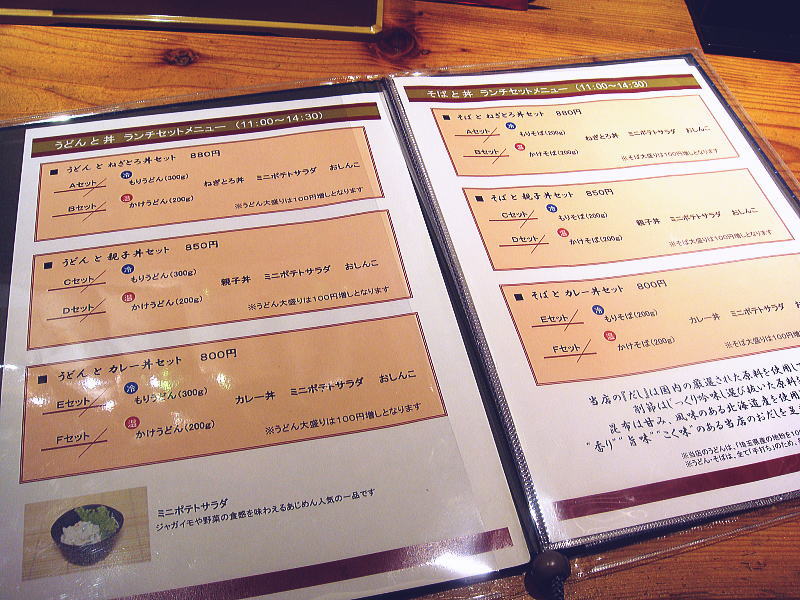 うどんと丼 ランチセットメニュー（11:00～14:30）
■ うどんと ねぎとろ丼セット 880円
Aセット 冷 もりうどん（300g）
Bセット 温 かけうどん（200g）
ねぎとろ丼 ミニポテトサラダ おしんこ
※うどん大盛りは100円増しとなります
■ うどんと 親子丼セット 850円
Cセット 冷 もりうどん（300g）
Dセット 温 かけうどん（200g）
親子丼 ミニポテトサラダ おしんこ
※うどん大盛りは100円増しとなります
■ うどんと カレー丼セット 800円
Eセット 冷 もりうどん（300g）
Fセット 温 かけうどん（200g）
カレー丼 ミニポテトサラダ おしんこ
※うどん大盛りは100円増しとなります
ミニポテトサラダ
ジャガイモや野菜の食感を味わえるあじめん人気の一品です
そばと丼 ランチセットメニュー（11:00～14:30）
■ そばと ねぎとろ丼セット 880円
Aセット 冷 もりそば（200g）
Bセット 温 かけそば（200g）
ねぎとろ丼 ミニポテトサラダ おしんこ
※そば大盛りは100円増しとなります
■ そばと 親子丼セット 850円
Cセット 冷 もりそば（200g）
Dセット 温 かけそば（200g）
親子丼 ミニポテトサラダ おしんこ
※そば大盛りは100円増しとなります
■ そばと カレー丼セット 800円
Eセット 冷 もりそば（200g）
Fセット 温 かけそば（200g）
カレー丼 ミニポテトサラダ お
※そば大盛りは100円増しとな
当店の『だし』は国内の厳選された原料を使用し
削節はじっくり吟味し選び抜いた原料
昆布は甘み、風味のある北海道産を使用
"香り" "旨味" "こく味"のある当店のおだしを
※当店のうどんは、「埼玉県産の地粉を
※うどん・そばは、全て「手打ち」のため、